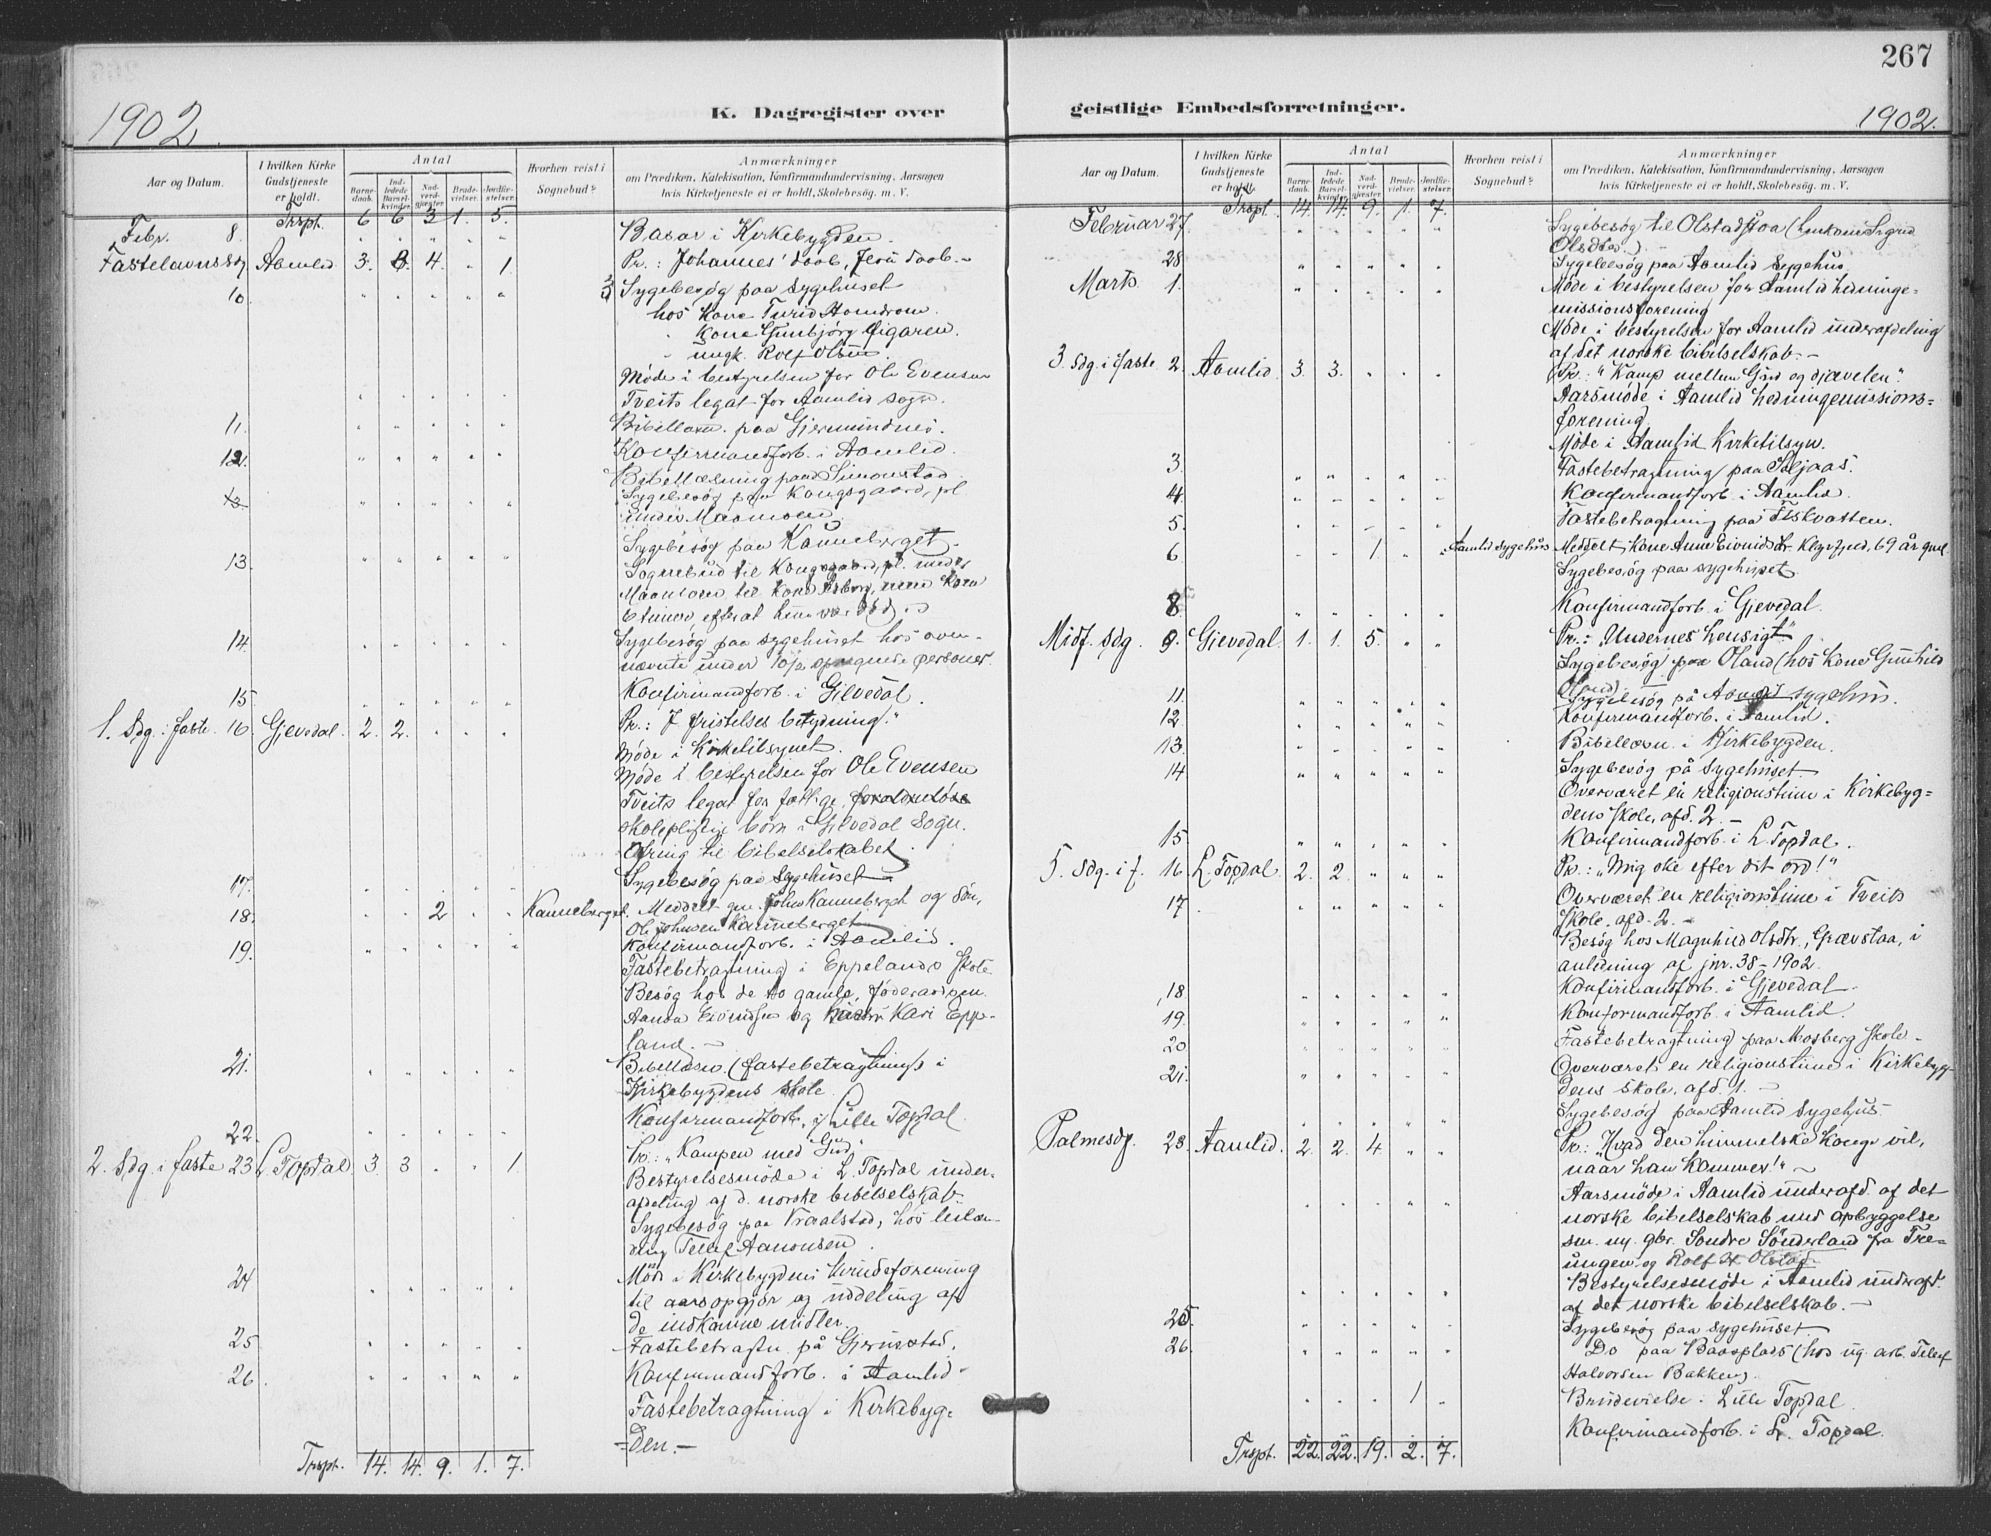 267
1902.
K. Dagregister over
geistlige Embedsforretninger.
1902.
Aar og Datum.
I hvilken Kirke Gudstjeneste er holdt.
Antal
Barne-daab.
Ind-ledede Barsel-kvinder.
Nad-verd-gjæster.
Brude-vielser.
Jordfæ-stelser.
Hvorhen reist i Sognebud?
Anmærkninger
om Prædiken, Katekisation, Konfirmandundervisning, Aarsagen
hvis Kirketjeneste ei er holdt, Skolebesøg. m. V.
Trspt. 6 6 3 1. 5.
Febr. 8. Basar i Kirkebygden.
Fastelavnssdg Aamlid 3. 3. 4. 1 Pr.: Johannes' daab, Jesu daab.-
10. 3 Sygebesøg paa sygehuset
hos Kone Turid
Kone Gunbjørg
ungk. Rolf Olsen.
Møde i bestyrelsen for Ole Evensen
Tveits legat for Aamlid sogn.
11. Bibellæsn. paa Gjermundnes.
12. Konfirmandforb. i Aamlid.
Bibellæsning paa Simonstad
13. Sygebesøg paa Kongsgaard, pl.
under
Sygebesøg paa Kanneberget.
13. Sognebud til Kongsgaard, pl. under
til kone
efterat hun var død.
14. Sygebesøg paa sygehuset hos oven-
nævnte under 10/2 opregnede personer.
15 Konfirmandforb. i Gjevedal.
1. Sdg. i faste 16 Gjevedal 2. 2. Pr.: "fristelses betydning."
Møde i Kirketilsynet.
Møde i bestyrelsen for Ole Evensen
Tveits legat for fattige, forældreløse
skolepligtige børn i Gjevedal Sogn.
Ofring til bibelselskabet.
17. Sygebesøg paa sygehuset
18. 2 Kanneberget. Meddelt gm. John Kanneberget og søn,
Ole Johnsen Kanneberget
19. Konfirmandforb. i Aamlid.
Fastebetragtning i Eppelands skole
Besøg hos de to gamle,
og Kari Epp-
land.-
21. Bibellæsn. (fastebetragtning) i
Kirkebygdens skole
22. Konfirmandforb. i Lille Topdal.
2. Sdg. i faste 23 L. Topdal 3 3 1. Pr.: "Kampen med Gud"
Bestyrelsesmøde i L. Topdal under-
afdeling af d. norske bibelselskab.
Sygebesøg paa Vraalstad, hos leilæn-
ding Tellef Aanonsen.
24 Møde i Kirkebygdens kvindeforening
til aarsopgjør og uddeling af
de indkomne midler.
25 Fastebetragtn. på
26. Konfirmandforb. i Aamlid-
Fastebetragtning i Kirkebyg=
=den.-
Trspt. 14. 14. 9. 1. 7.
Aar og Datum.
I hvilken Kirke Gudstjeneste er holdt.
Antal
Barne-daab.
Ind-ledede Barsel-kvinder.
Nad-verd-gjæster.
Brude-vielser.
Jordfæ-stelser.
Hvorhen reist i Sognebud?
Anmærkninger
om Prædiken, Katekisation, Konfirmandundervisning, Aarsagen
hvis Kirketjeneste ei er holdt, Skolebesøg. m. V.
Trspt. 14. 14. 9. 1. 7.
Februar 27. Sygebesøg til Olstadstoa ( Sigrid
Olsdtr.)
28 Sygebesøg paa Aamlid sygehus
Marts 1. Møde i bestyrelsen for Aamlid hedninge=
missionsforening
Møde i bestyrelsen for Aamlid underafdeling
af det norske bibelselskab.-
3. Sdg. i faste 2. Aamlid. 3. 3. Pr.: "Kamp mellem Gud og djævelen".
Aarsmøde i Aamlid hedningemissions=
forening
Møde i Aamlid Kirketilsyn.
3. Fastebetragtning paa Seljaas.
4. Konfirmandforb. i Aamlid.
5. Fastebetragtning paa
6 1 Aamlid sygehus Meddelt kone Anne 69 år gml.
Sygebesøg paa sygehuset
8. Konfirmandforb. i Gjevedal.
Midf. sdg. 9. Gjevedal. 1. 1. 5. Pr.: "Undernes hensigt."
Sygebesøg paa Øland (hos kone Gunhild
Øland)
11. Sygebesøg på Aamlid sygehus.
12 Konfirmandforb. i Aamlid.
13. Bibellæsn. i Kirkebygden.
14 Sygebesøg på sygehuset.
Overværet en religionstime i Kirkebyg=
dens skole, afd. 2.-
15 Konfirmandforb. i L. Topdal.
5. Sdg. i f. 16 L. Topdal 2. 2. Pr.: "Mig ske efter dit ord!"
17 Overværet en religionstime i Tveits
skole, afd. 2.-
Besøg hos Magnhild Olsdtr., Grævstaa, i
anledning af jnr. 38-1902.
18. Konfirmandforb. i Gjevedal.
19. Konfirmandforb. i Aamlid.
20 Fastebetragtning paa Mosberg skole-
21. Overværet en religionstime i Kirkebyg
dens skole, afd. 1.-
Sygebesøg paa Aamlid sygehus.
Palmesdg. 23. Aamlid. 2. 2. 4. Pr.: "Hvad den himmelske konge vil,
naar han kommer!"-
Aarsmøde i Aamlid underafd. af det
norske bibelselskab med opbyggelse
sm. m. gbr. Sondre Sønderland fra Tre=
ungen og Rolf H. Olstad.
Bestyrelsesmøde i Aamlid underafd.
af det norske bibelselskab.-
25. Sygebesøg paa sygehuset
26. Do paa Baasplads (hos ug. arb. Tellef
Halvorsen Bakken).
1 Brudevielse i Lille Topdal.
Konfirmandforb. i L. Topdal.
Trspt. 22. 22. 19. 2. 7.